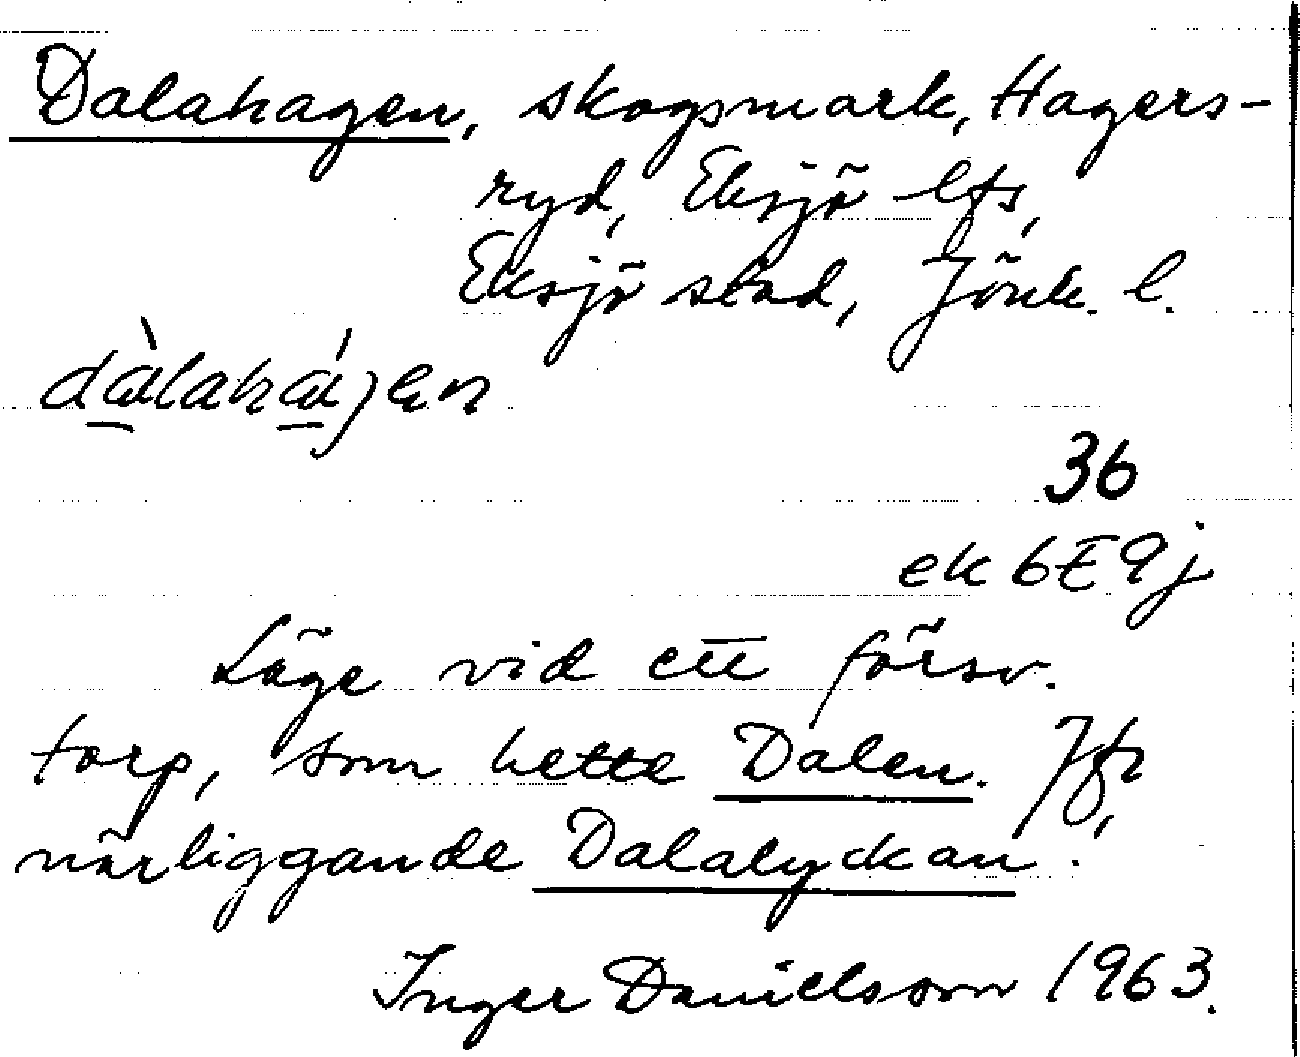 Dalahagen, skogsmark, Hagers-
ryd, Eksjö lfs,
Eksjö stad, Jönk. l.
dàlahájen
36
ek 6E9j
Läge vid ett försv.
torp, som hette Dalen. Jfr,
närliggande Dalalyckan.
Inger Danielsson 1963.